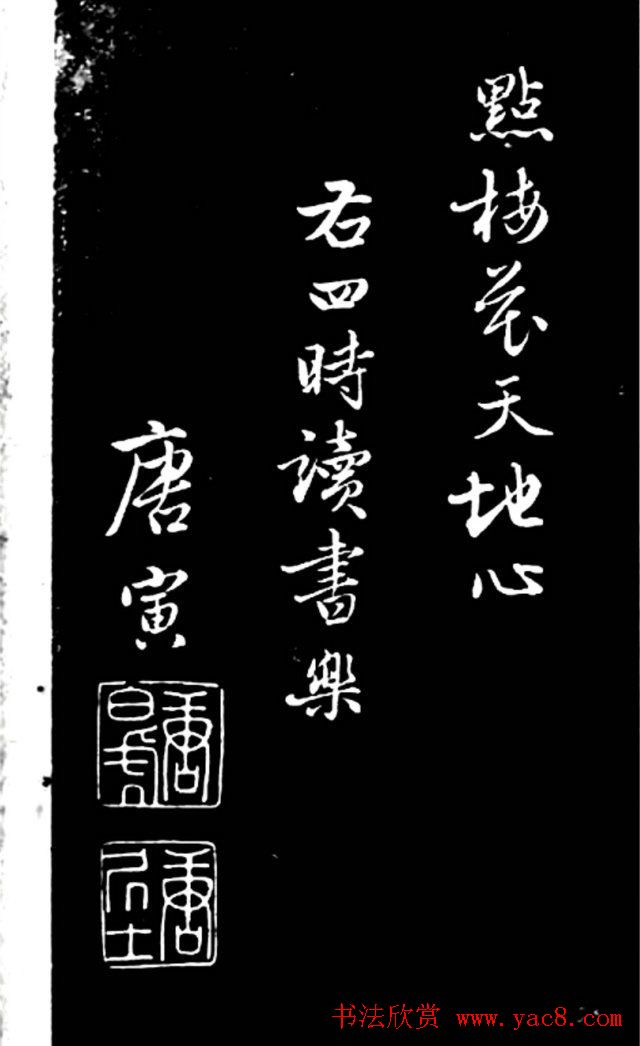 點梅花天地心
右四時讀書樂
唐寅
唐白虎
唐居士
书法欣赏 www.yac8.com